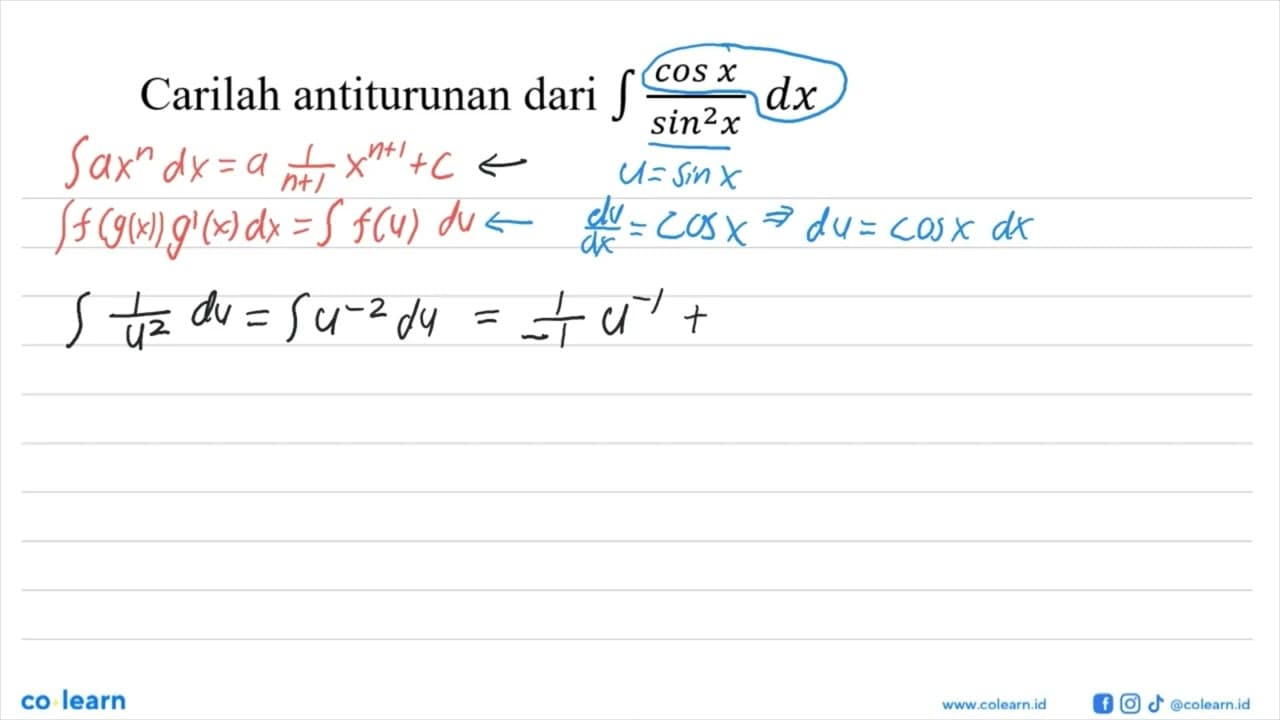 Carilah antiturunan dari ∫ cos x / sin²x dx
∫ax^n dx = a 1/(n+1) x^(n+1) + C ←
u = sin x
∫f(g(x)) g'(x) dx = ∫ f(u) du ←
du/dx = cos x ⇒ du = cos x dx
∫ 1/u² du = ∫u^-2 du = 1/-1 u^-1 +
co learn
www.colearn.id
@colearn.id